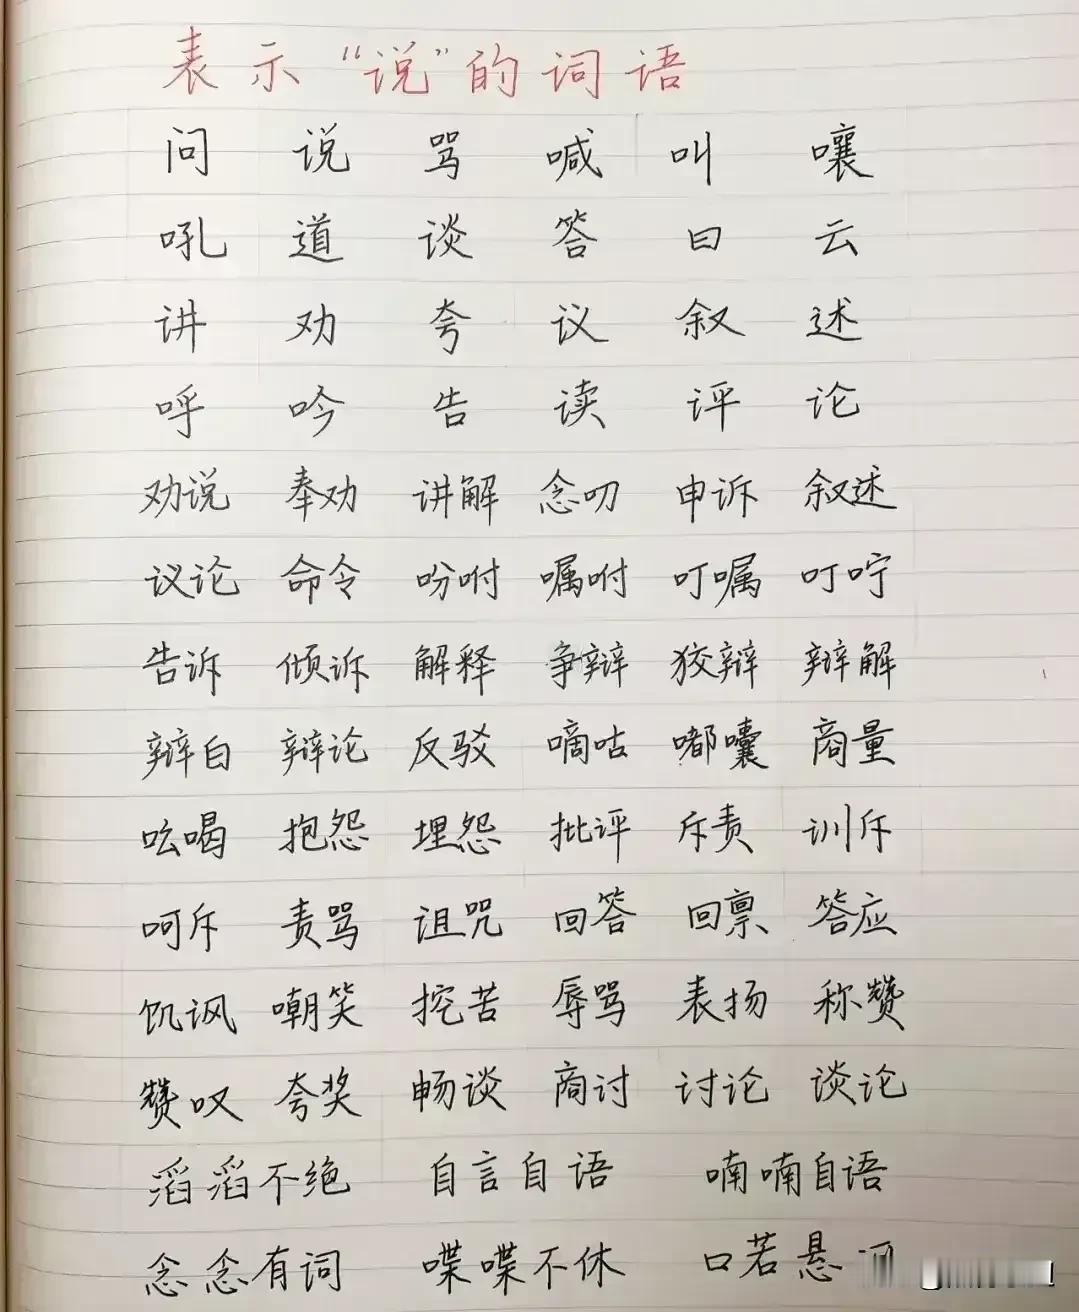 表示“说”的词语
问 说 骂 喊 叫 嚷
吼 道 谈 答 曰 云
讲 劝 夸 议 叙 述
呼 吟 告 读 评 论
劝说 奉劝 讲解 念叨 申诉 叙述
议论 命令 吩咐 嘱咐 叮嘱 叮咛
告诉 倾诉 解释 争辩 狡辩 辩解
辩白 辩论 反驳 嘀咕 嘟囔 商量
吆喝 抱怨 埋怨 批评 斥责 训斥
呵斥 责骂 诅咒 回答 回禀 答应
讥讽 嘲笑 挖苦 辱骂 表扬 称赞
赞叹 夸奖 畅谈 商讨 讨论 谈论
滔滔不绝 自言自语 喃喃自语
念念有词 喋喋不休 口若悬